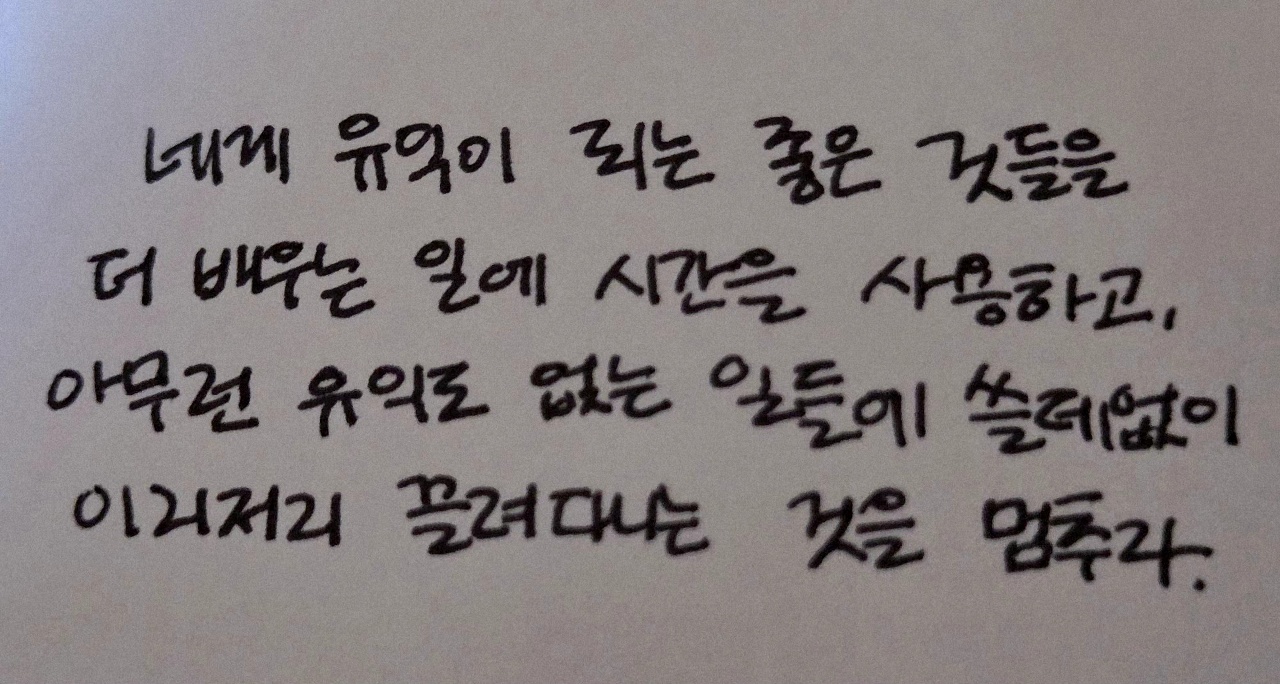 네게 유익이 되는 좋은 것들을
더 배우는 일에 시간을 사용하고,
아무런 유익도 없는 일들에 쓸데없이
이리저리 끌려다니는 것을 멈추라.